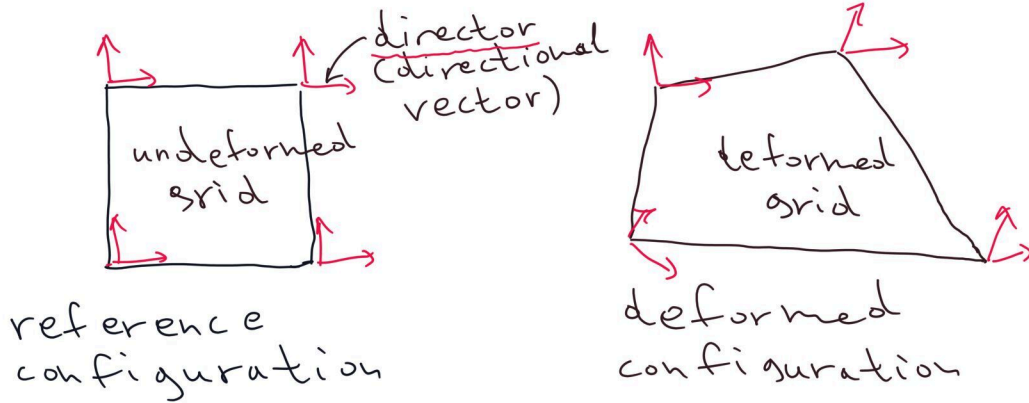 director
(directional
vector)
undeformed
grid
deformed
grid
reference
configuration
deformed
configuration